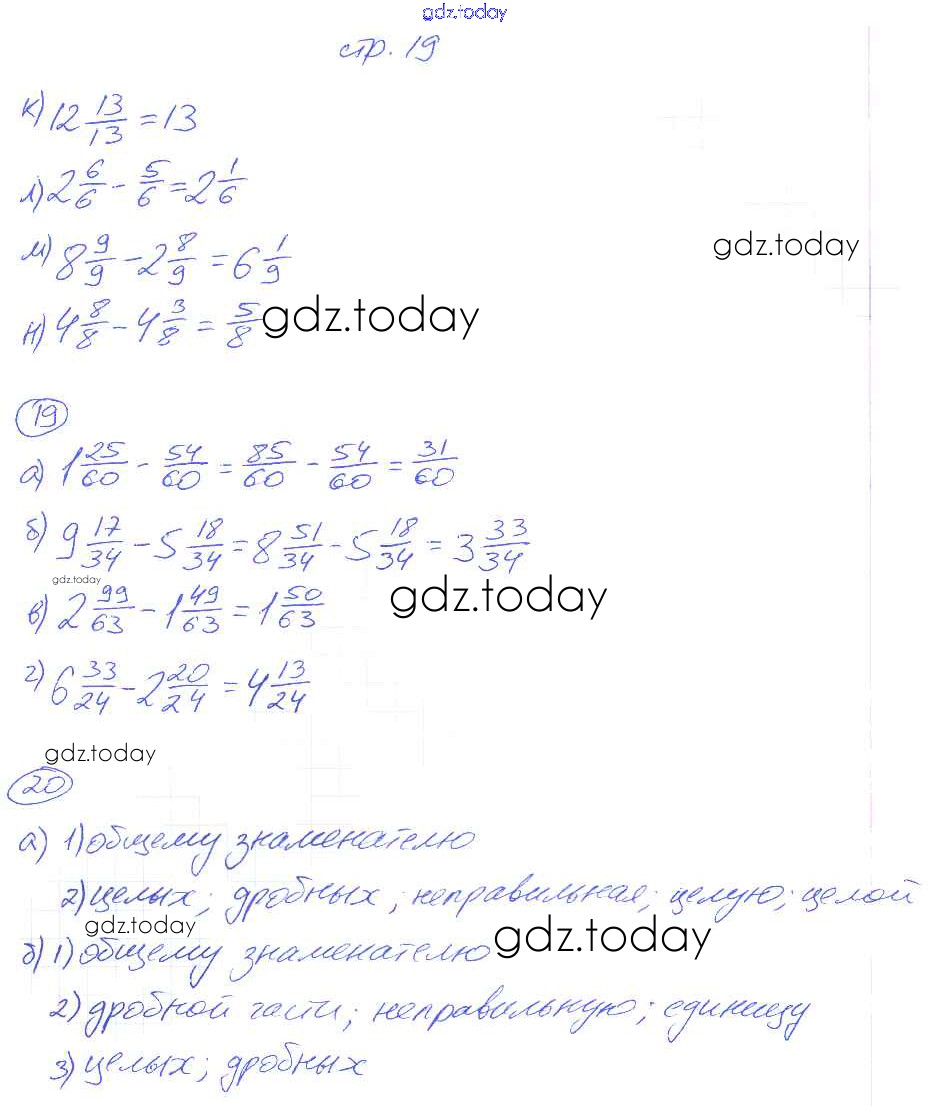 gdz.today
стр. 19
к) 12 13/13 = 13
л) 2 6/6 - 5/6 = 2 1/6
gdz.today
м) 8 9/9 - 2 8/9 = 6 1/9
н) 4 8/8 - 4 3/8 = 5/8 gdz.today
19
а) 1 25/60 - 54/60 = 85/60 - 54/60 = 31/60
б) 9 17/34 - 5 18/34 = 8 51/34 - 5 18/34 = 3 33/34
gdz.today
gdz.today
в) 2 99/63 - 1 49/63 = 1 50/63
г) 6 33/24 - 2 20/24 = 4 13/24
gdz.today
20
а) 1) общему знаменателю
2) целых; дробных; неправильная; целую; целой
gdz.today
б) 1) общему знаменателю gdz.today
2) дробной части; неправильную; единицу
3) целых; дробных